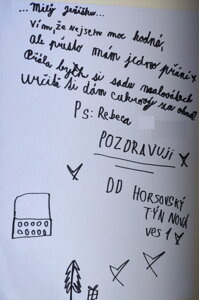 ... Milý Ježíšku...
Vím, že nejsem moc hodná,
Ale přesto mám jedno přání
Přála bych si sadu na
Určitě si dám cukroví za
Ps: Rebeca
POZDRAVUJI
DD HORSOVSKÝ
TÝN NOVÁ
ves 1